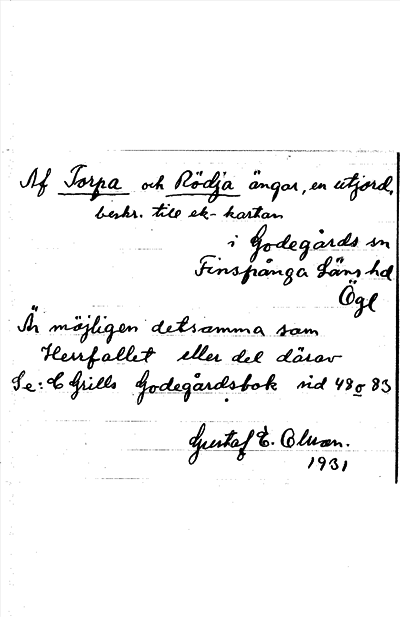 Af Torpa och Rödja ängar, en utjord,
beskr. till ek-kartan
i Godegårds sn
Finspånga Läns hd
Ögl
Är möjligen detsamma som
Herrfallet eller del därav
Se: C Grills Godegårdsbok sid 48 o 83
Gustaf E.
1931